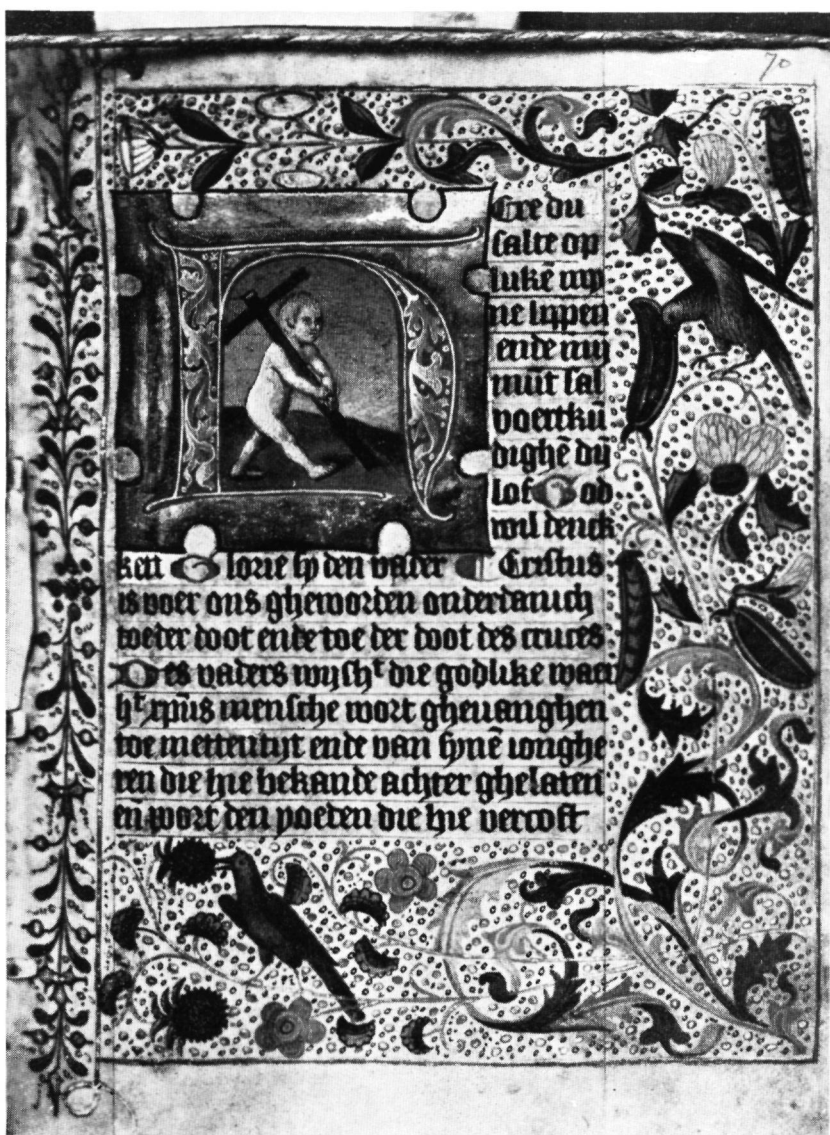 70
Ere du
salte op
lukē mÿ
ne lippen
ende mÿ
mut sal
voertkū
dighē dÿ
lof God
wil denck
ken Glorie sy den vader Cristus
is voer ons gheworden onderdanich
toeter doot ende toe der doot des cruces
Des vaders wijsht die godlike waer
ht xpūs mensche wort gheuanghen
toe mettentijt ende van synē ionghe
ren die hie bekande achter ghelaten
eñ wort den yoeden die hie vercoft